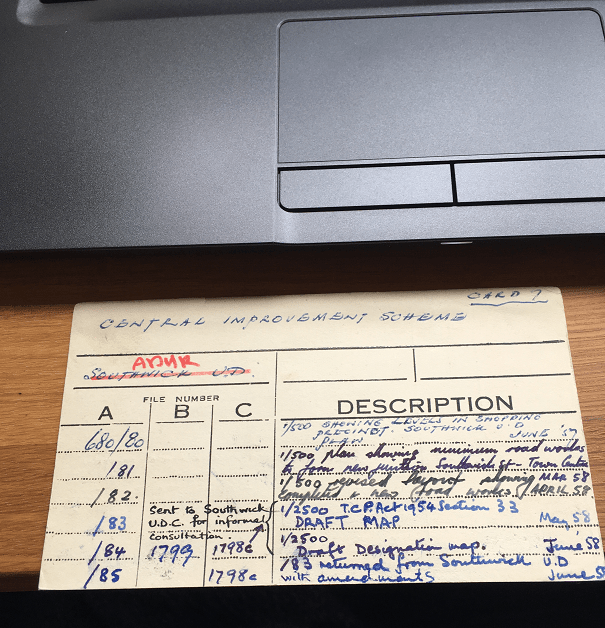 CARD 7
CENTRAL IMPROVEMENT SCHEME
ADUR
SOUTHWICK U.D.
FILE NUMBER
A B C DESCRIPTION
680/80 1/500 SHOWING LEVELS IN SHOPPING
PRECINCT. SOUTHWICK U.D
PLAN JUNE 57
/81 1/500 plan showing minimum road works
to form new junction Southwick St - Town Centre MAR 58
/82 1/500 revised layout showing
completed & new road works APRIL 58
/83 Sent to Southwick U.D.C. for informal consultation 1/2500 T.C.P. Act 1954 Section 33
DRAFT MAP May 58
/84 1799 1798c 1/2500
Draft Designation map. June 58
/85 1798c /83 returned from Southwick U.D
with amendments June 58